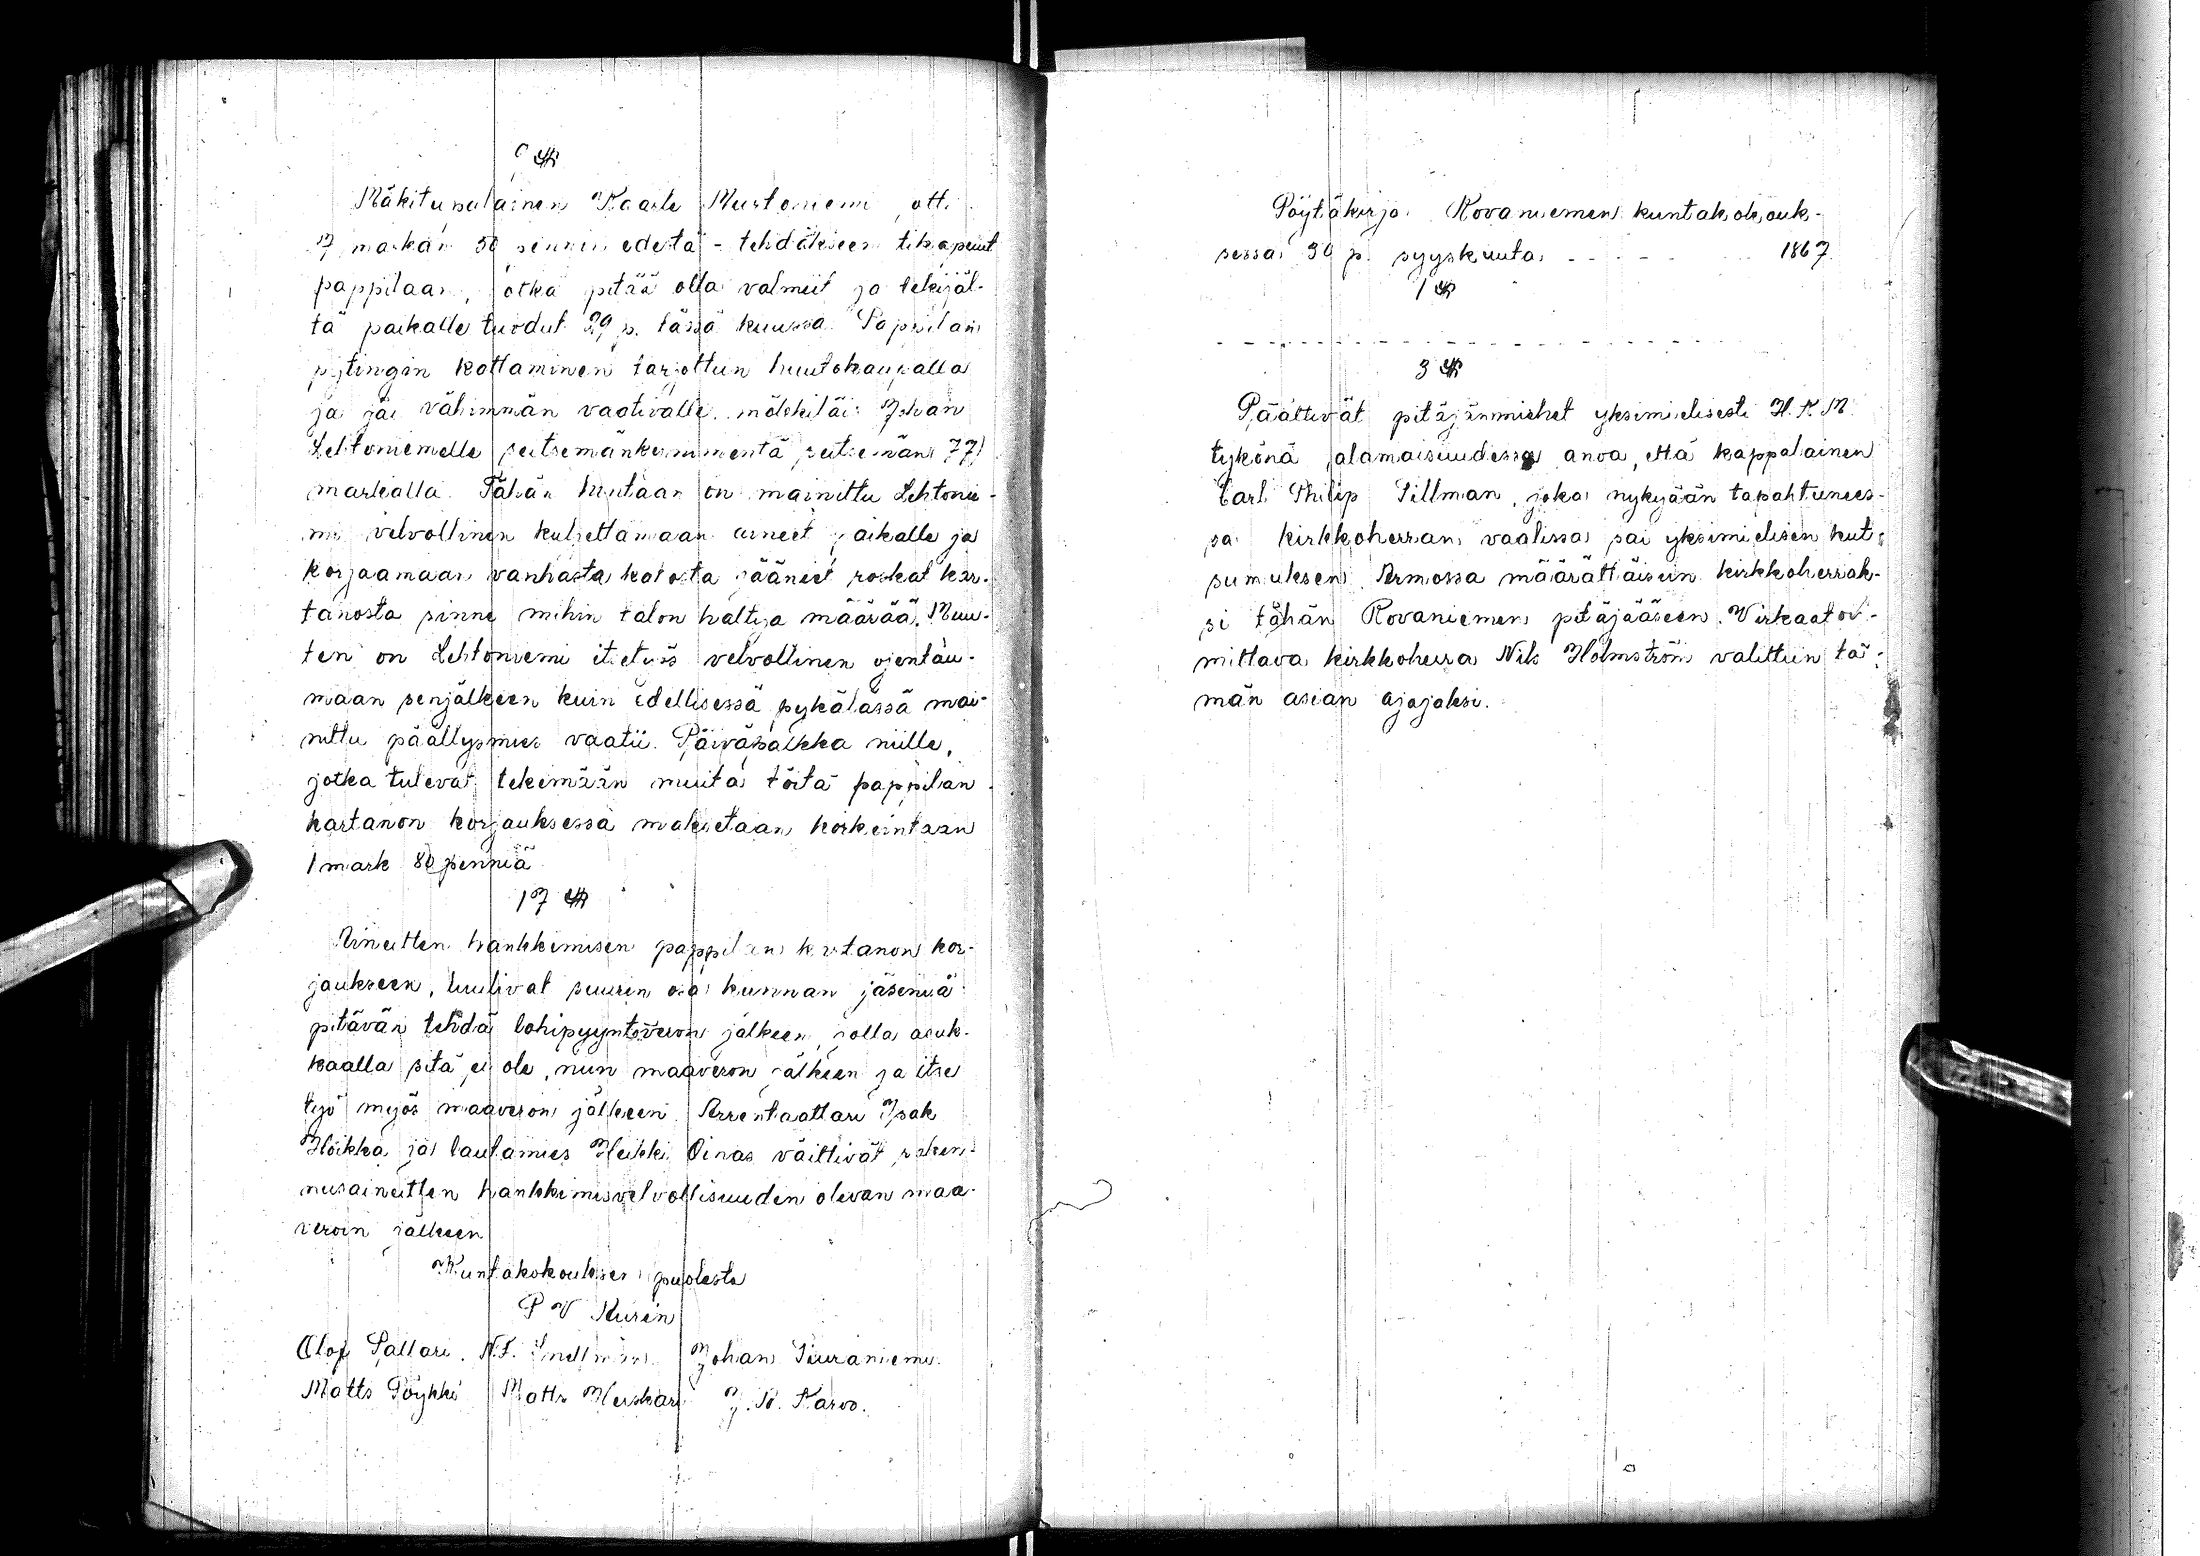 §
Mäkitupalainen Kaarle Mustoniemi otti
17 markan 50 pennin edestä - tehdäkseen tikapuut
pappilaan, jotka pitää olla valmiit ja tekijäl-
tä paikalle tuodut 29 p. tässä kuussa. Pappilan
pytingin kattaminen tarjottiin huutokaupalla
ja jäi vähimmän vaativalle, mökkiläis Johan
Lehtoniemelle seitsemänkymmentä seitsemän 77)
markalla. Tähän hintaan on mainittu Lehtonie-
mi velvollinen kuljettamaan aineet paikalle ja
korjaamaan vanhasta katosta jääneet roskat kar-
tanosta sinne mihin talon haltija määrää. Muu-
ten on Lehtoniemi itsetyös velvollinen ojentau-
maan senjälkeen kuin edellisessä pykälässä mai-
nittu päällysmies vaatii. Päiväpalkka niille,
jotka tulevat tekemään muita töitä pappilan
kartanon korjauksessa maksetaan korkeintaan
1 mark 80 penniä
17 §
Aineitten hankkimisen pappilan kartanon kor-
jaukseen, luulivat suurin osa kunnan jäseniä
pitävän tehdä lohipyyntöveron jälkeen, jolla asuk-
kaalla sitä ei ole, niin maaveron jälkeen ja itse
työ myös maaveron jälkeen. Arrentaattari Isak
Hoikka ja lautamies Heikki Oinas väittivät raken-
nusaineitten hankkimisvelvollisuuden olevan maa-
veroin jälkeen
Kuntakokouksen puolesta
P W Kurin
Olof Pallari. N.F. Snellman. Johan Siuraniemi.
Matts Pöykkö Matts Heiskari J. K. Karvo.
Pöytäkirja Rovaniemen kuntakokouk-
sessa 30 p. syyskuuta - - - - - 1867
1 §
- - - - - - - - - - - - - - - -
3 §
Päättivät pitäjänmiehet yksimielisesti H. K. M.
tykönä alamaisuudessa anoa, että kappalainen
Carl Philip Tillman, joka nykyään tapahtunees-
sa kirkkoherran vaalissa sai yksimielisen kut-
sumuksen Armossa määrättäisiin kirkkoherrak-
si tähän Rovaniemen pitäjääseen. Virkaatoi-
mittava kirkkoherra Nils Holmström valittiin tä-
män asian ajajaksi.